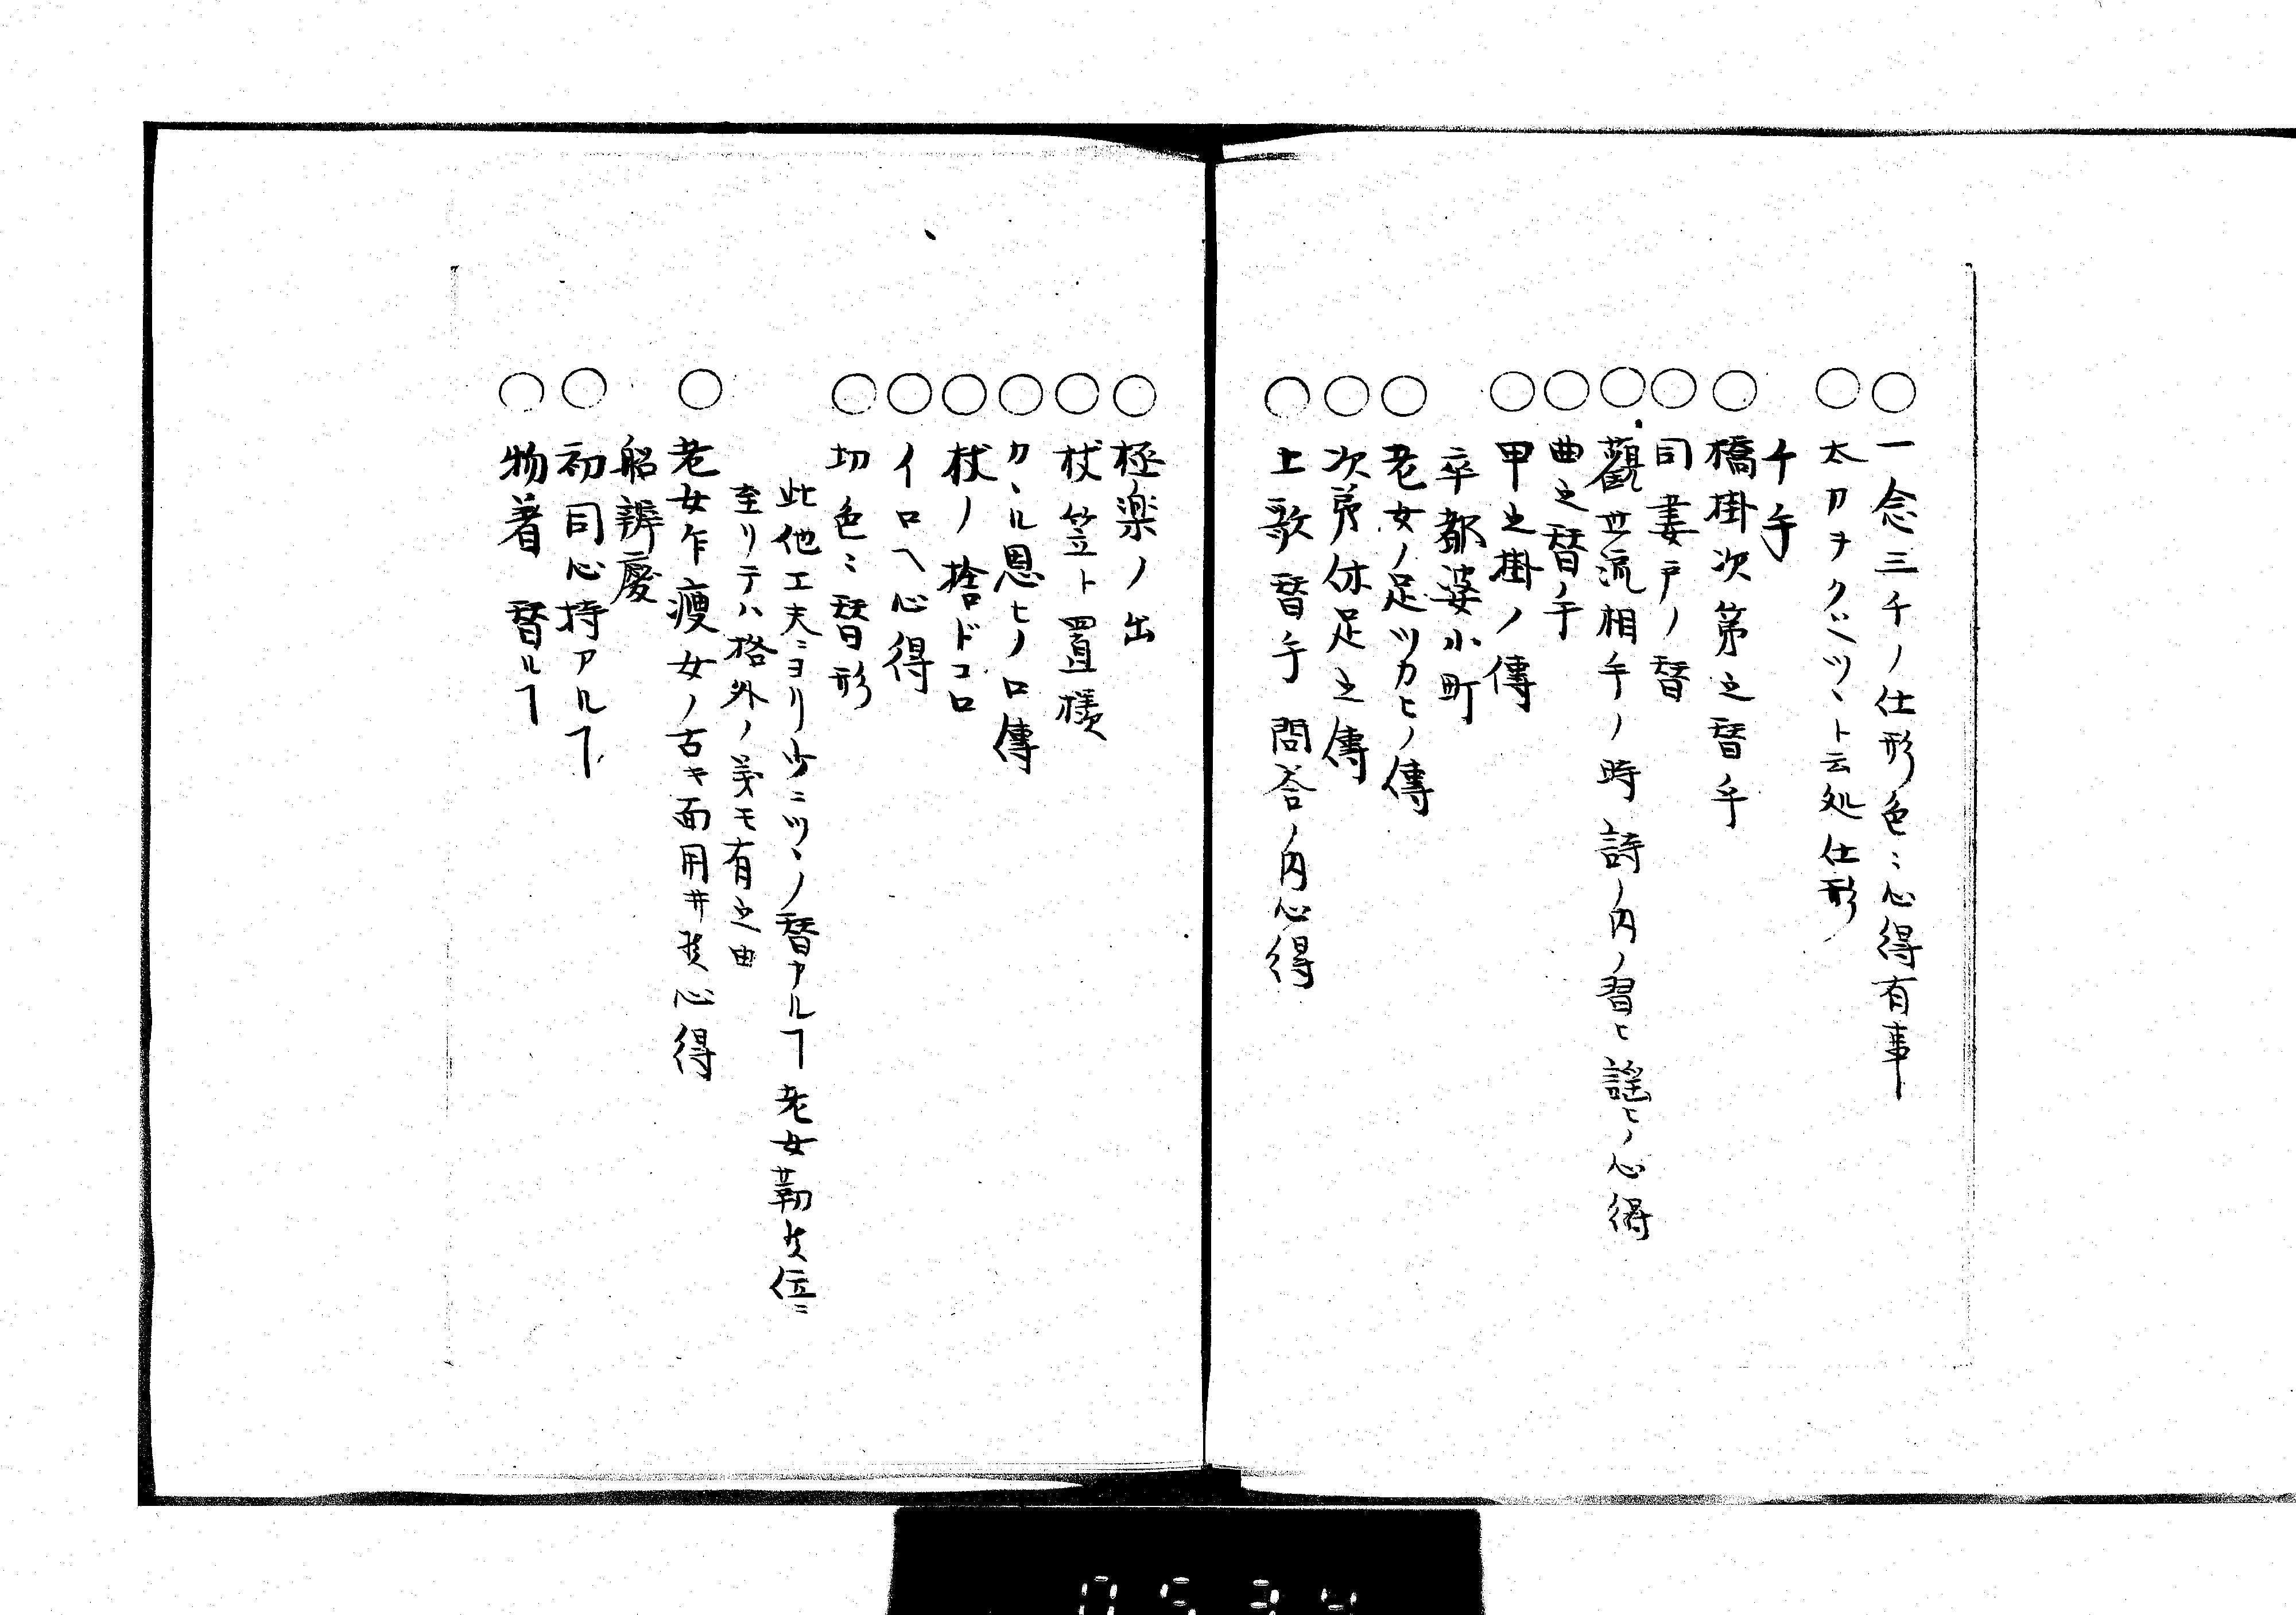 ○一念三千ノ仕形色ニ心得有事
○太刀ヲクバツヽト云処仕形
千手
○橋掛次第之替手
○同妻戸ノ替
○觀世流相手ノ時詩ノ内ノ習ヒ謡ヒノ心得
○曲之替ノ手
○甲之掛ノ傳
卒都婆小町
○老女ノ足ツカヒノ傳
○次第休足之傳
○上歌替手問答ノ内心得
○極楽ノ出
○杖笠ト置様
○カヽル恩ヒノ口傳
○杖ノ捨ドコロ
○イロヘ心得
○切色ニ替形
此他工夫ニヨリ少ニツヽノ替アルヿ老女勤位ニ
至リテハ格外ノ義モ有之由
○老女乍痩女ノ古キ面用井心得
船辨慶
○初同心持アルヿ
○物着替ルヿ
0534